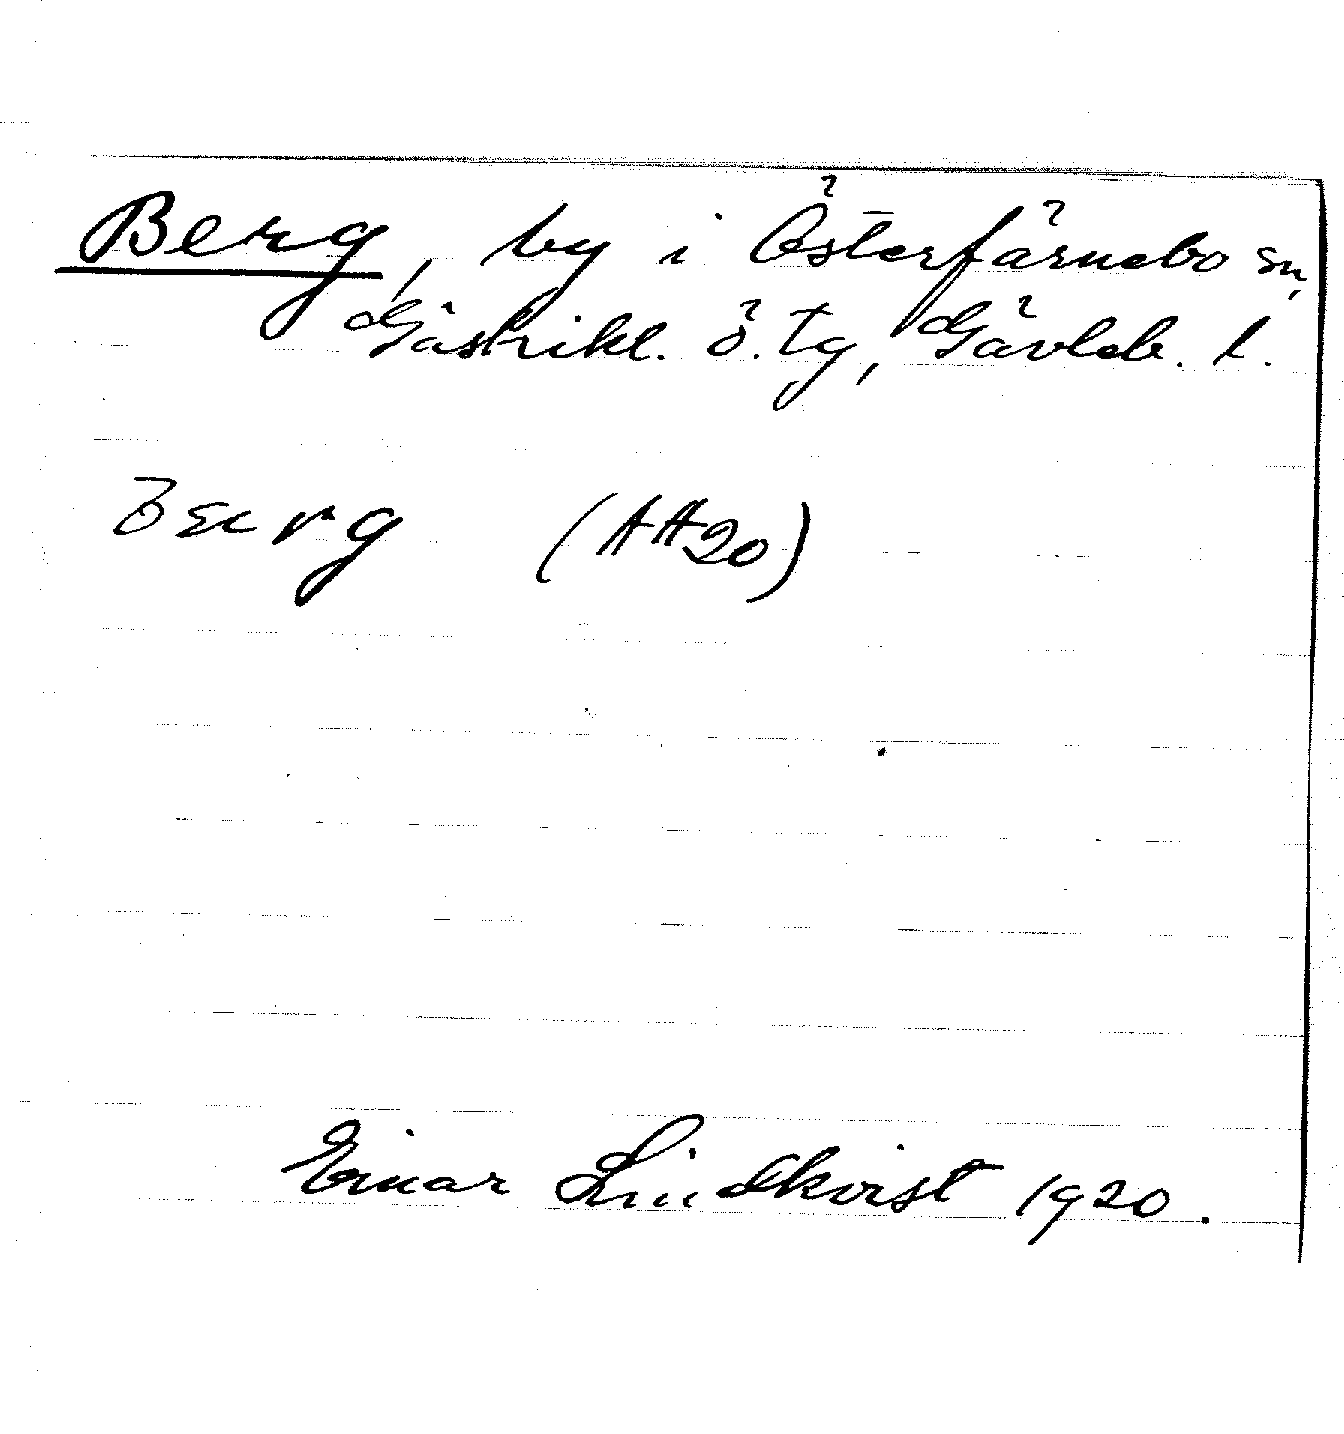 Berg, by i Österfärnebo sn,
Gästrikl. ö. tg, Gävleb. l.
(AA20)
Einar Lindkvist 1920.